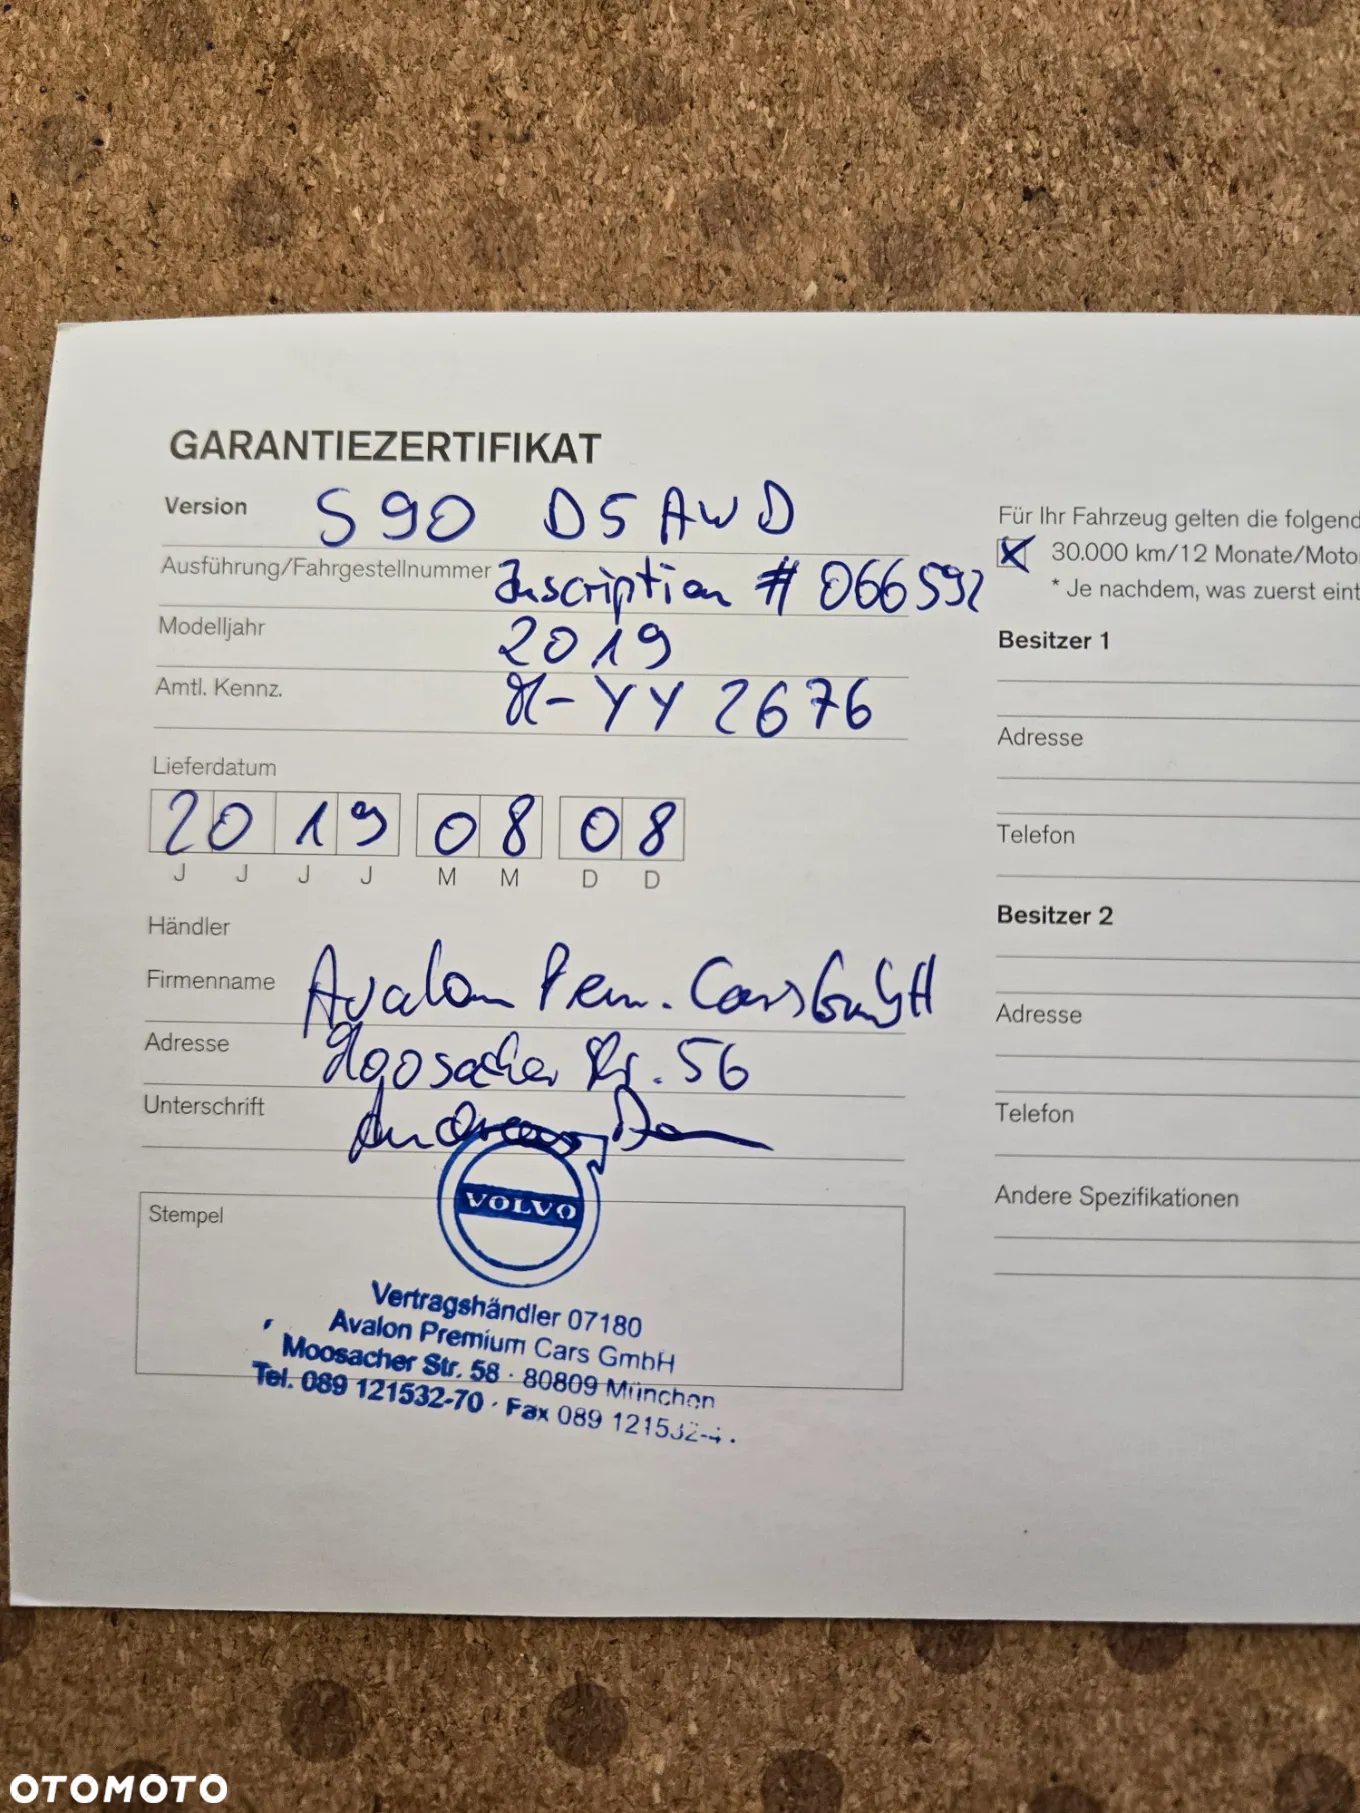 GARANTIEZERTIFIKAT
Version S90 D5 AWD
Ausführung/Fahrgestellnummer Inscription # 066592
Modelljahr 2019
Amtl. Kennz. M-YY 2676
Lieferdatum
2019 08 08
J J J J M M D D
Händler
Firmenname Avalon Prem. Cars GmbH
Adresse Moosacher Str. 56
Unterschrift Andreas
Stempel
VOLVO
Vertragshändler 07180
Avalon Premium Cars GmbH
Moosacher Str. 58 · 80809 München
Tel. 089 121532-70 · Fax 089 121532-
Für Ihr Fahrzeug gelten die folgend
30.000 km/12 Monate/Moto
* Je nachdem, was zuerst eint
Besitzer 1
Adresse
Telefon
Besitzer 2
Adresse
Telefon
Andere Spezifikationen
OTOMOTO